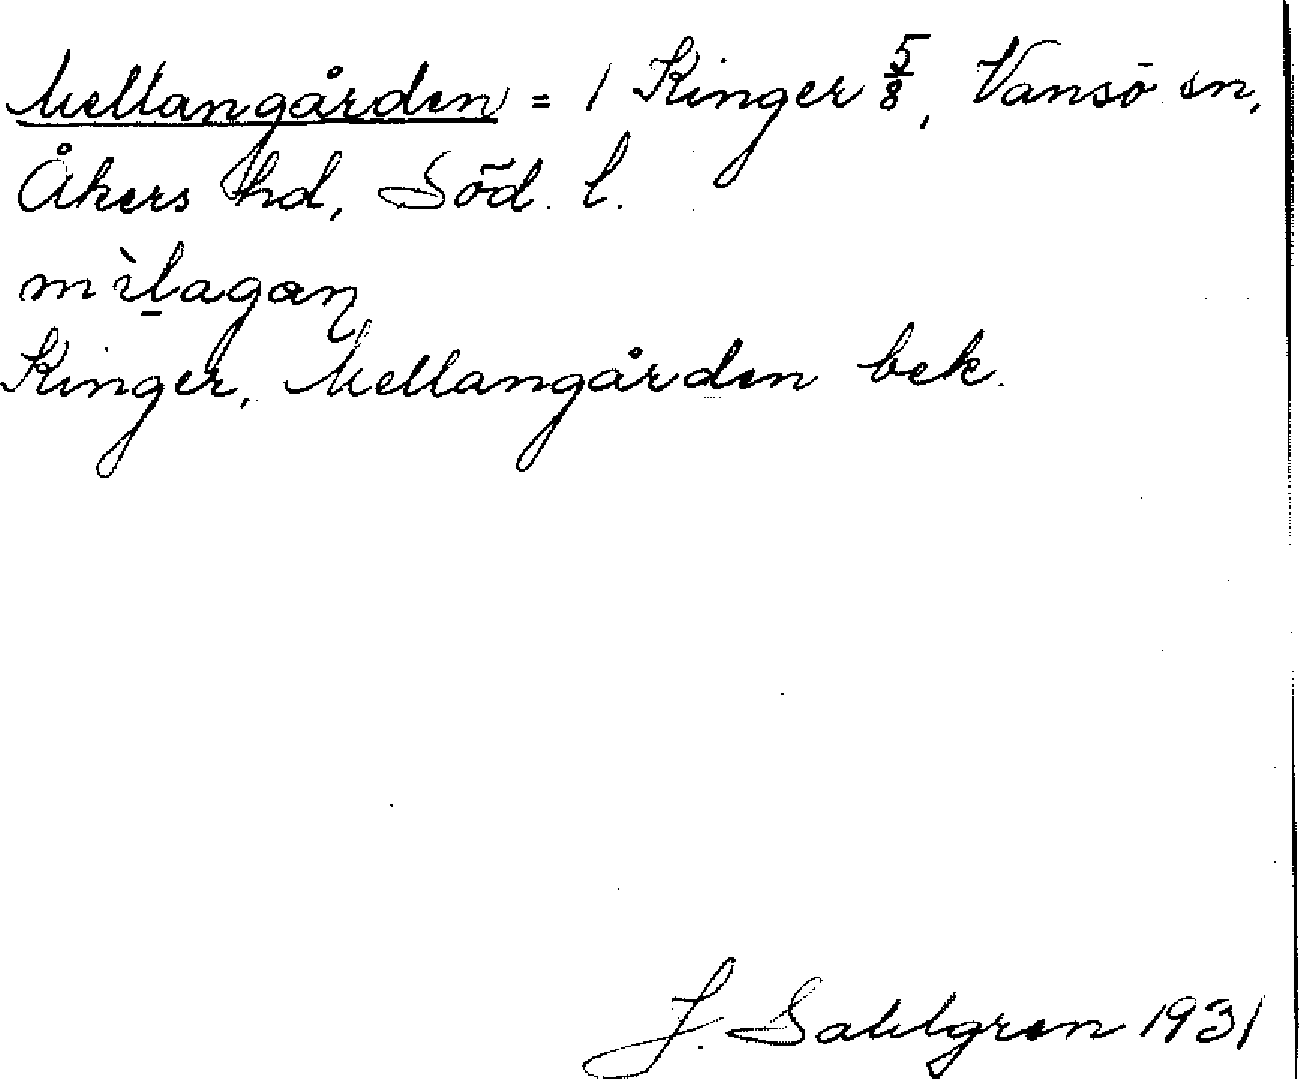 Mellangården = 1 Kinger 5/8, Vansö sn,
Åkers hd, Söd. l.
mìlagaɳ
Kinger, Mellangården bek.
J. Sahlgren 1931